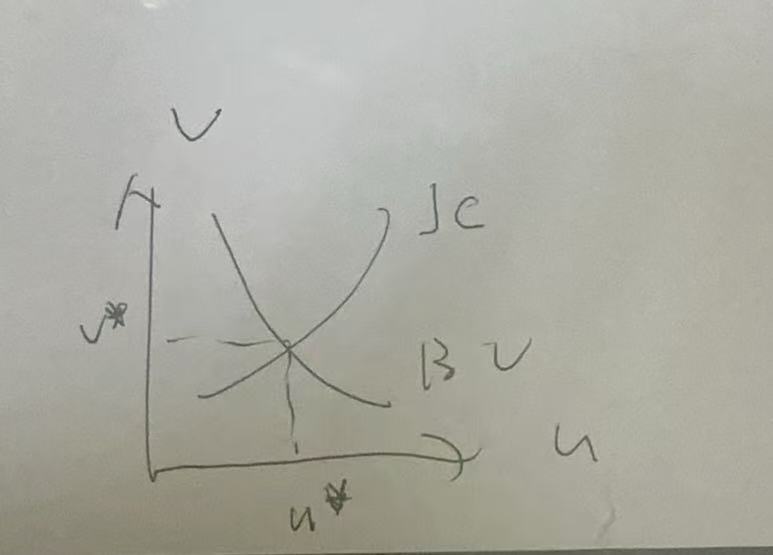 V
JC
V*
BV
u
u*